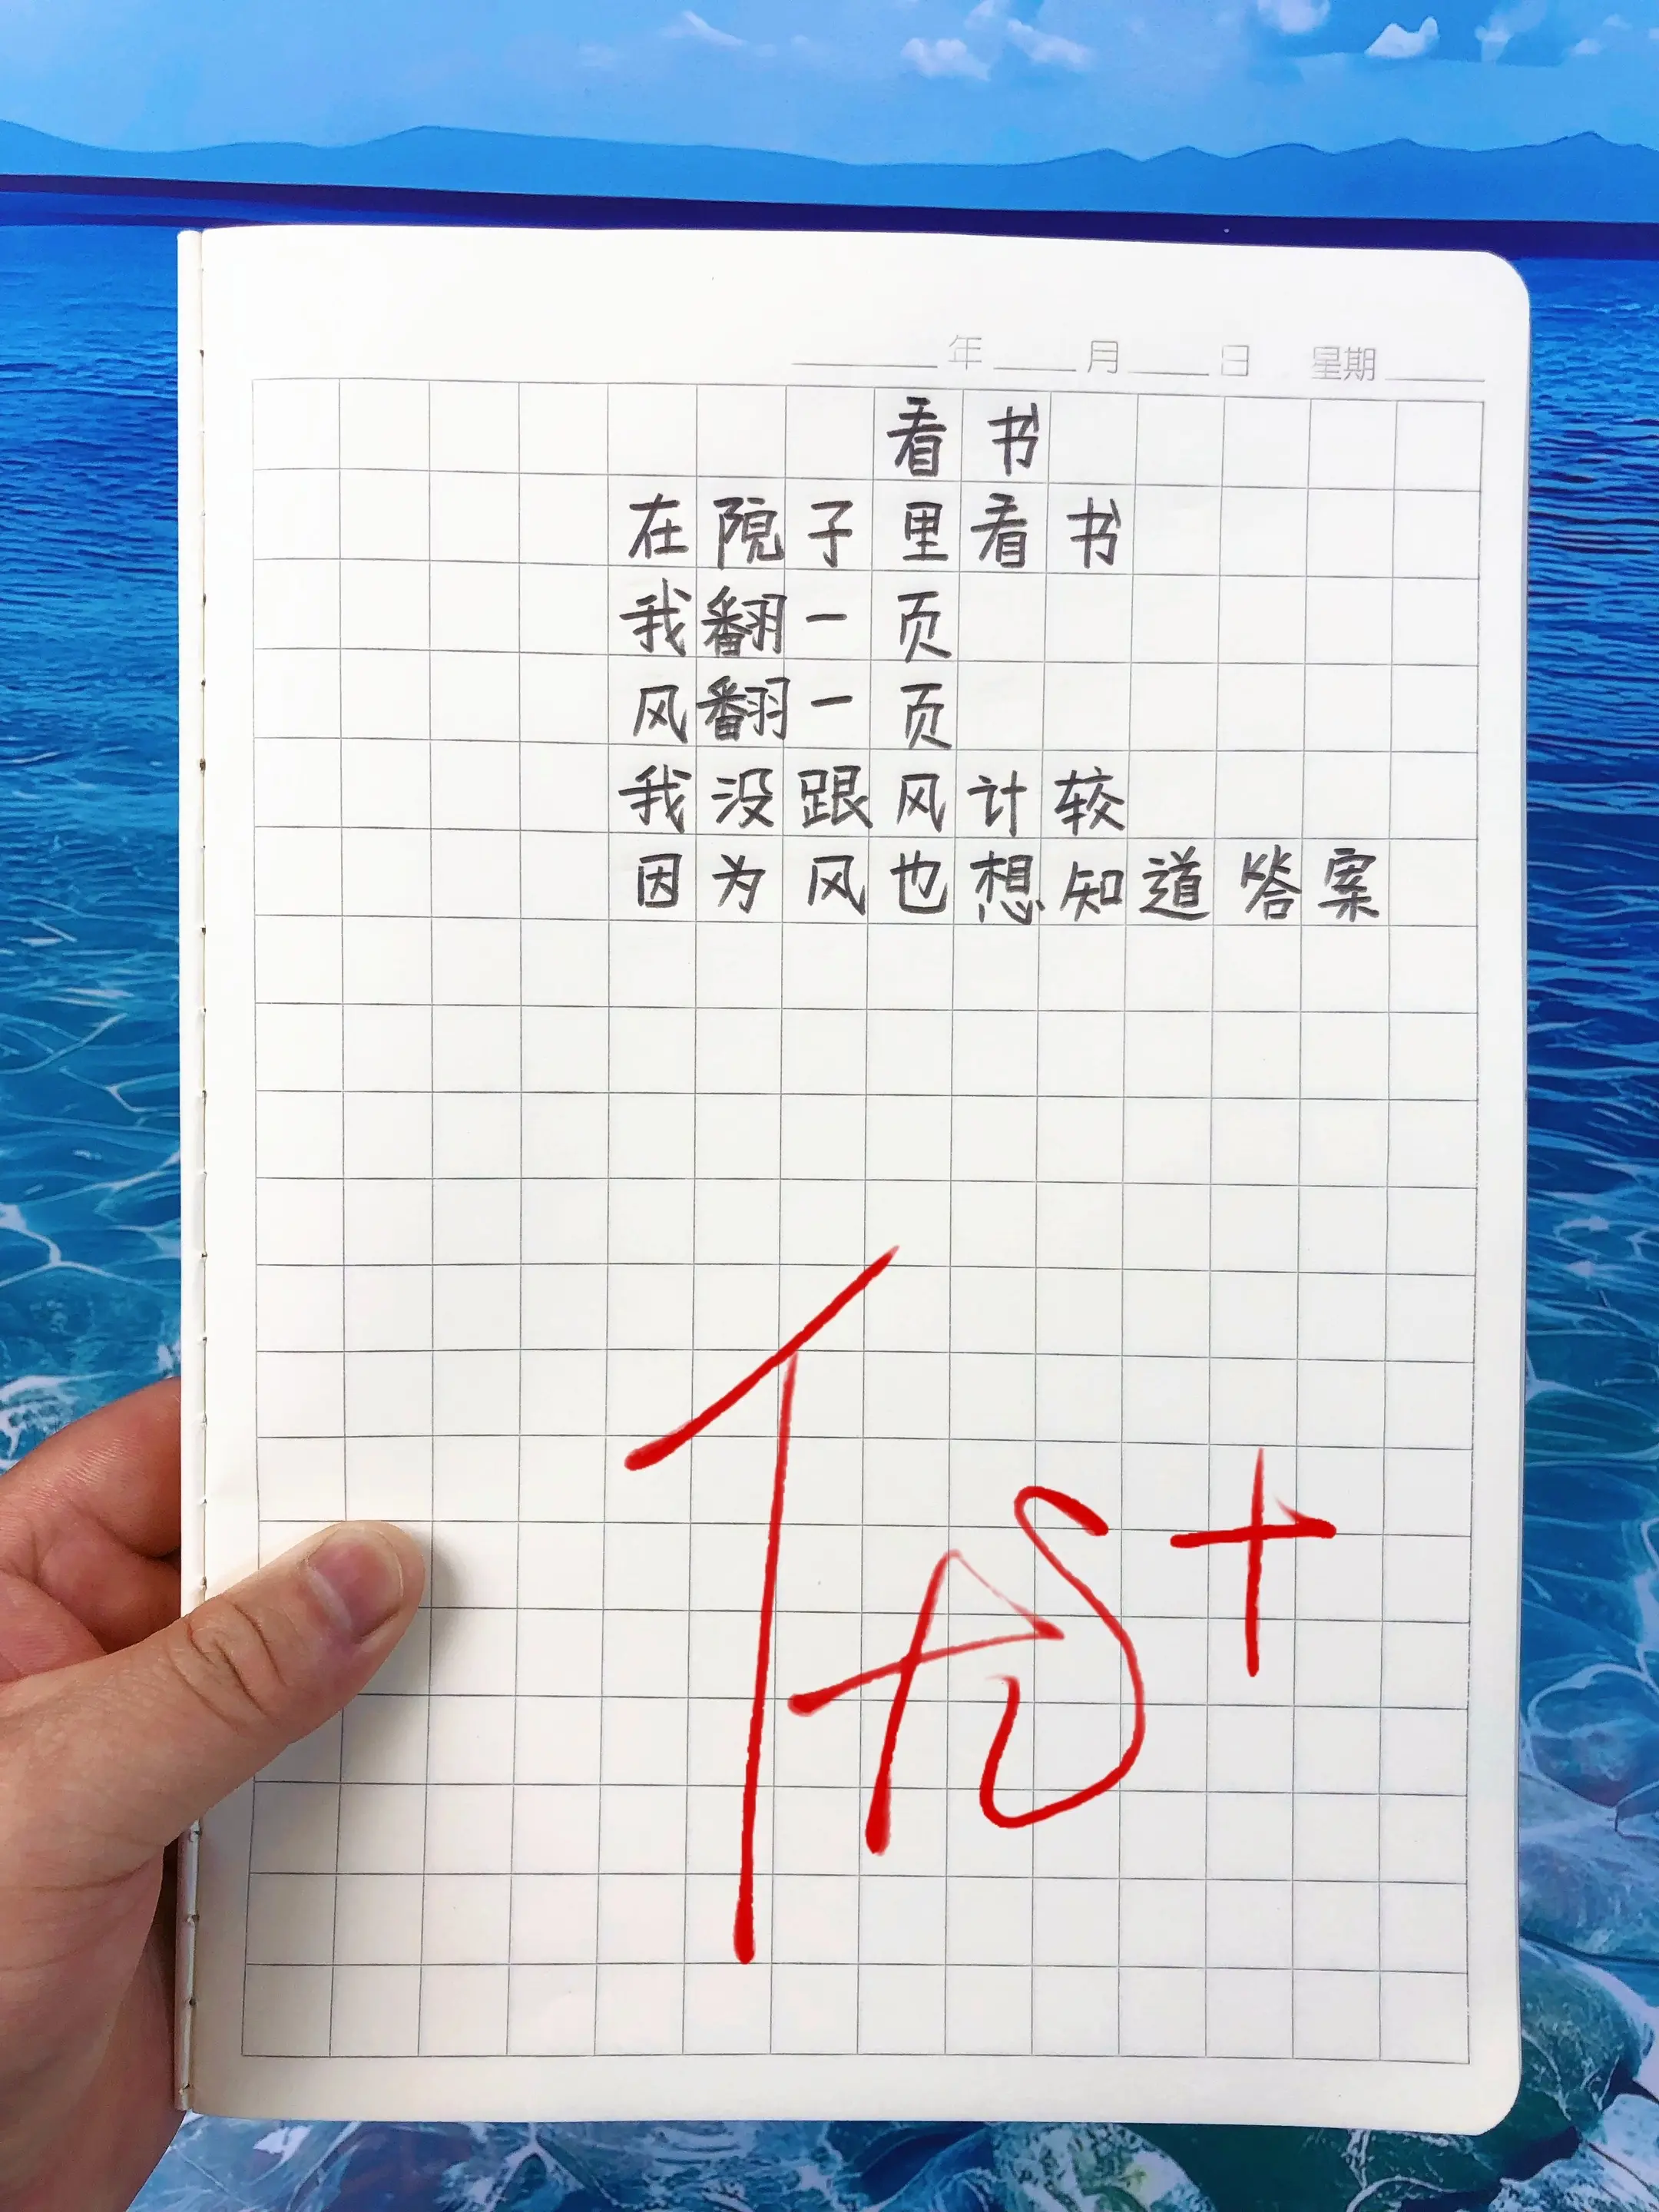 年 月 日 星期
看书
在院子里看书
我翻一页
风翻一页
我没跟风计较
因为风也想知道答案